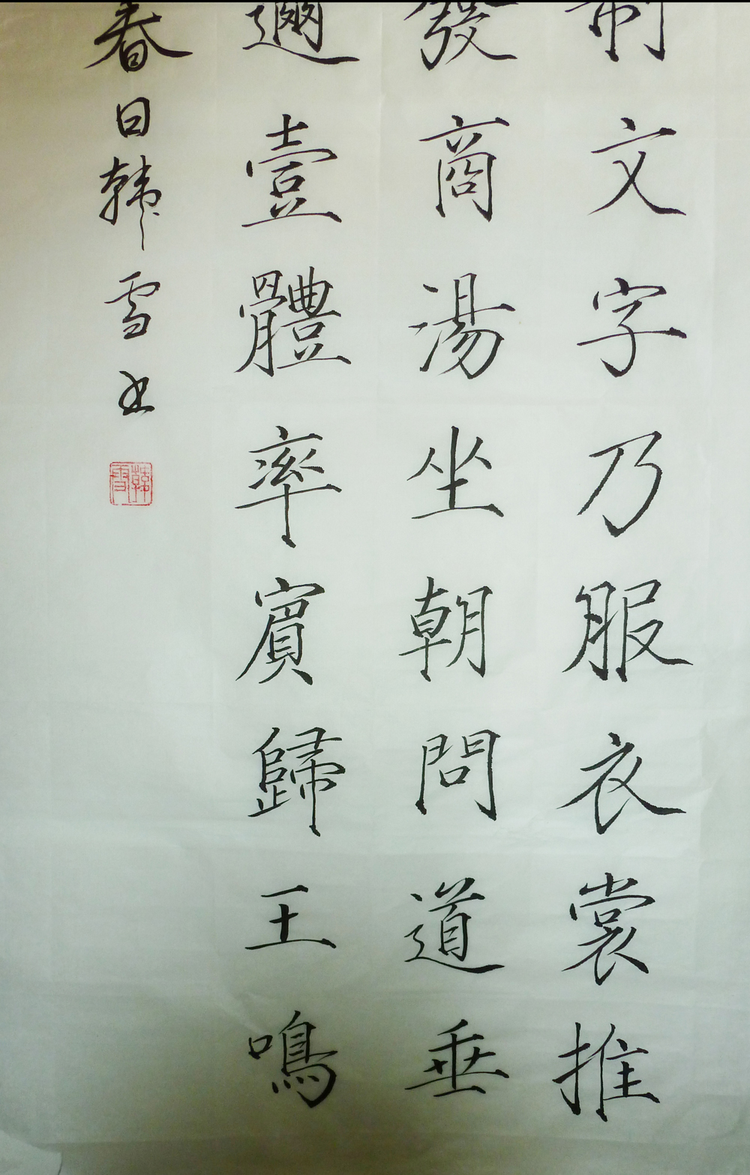 制文字乃服衣裳推
發商湯坐朝問道垂
邇壹體率賓歸王鳴
春日韩雪书
韓雪